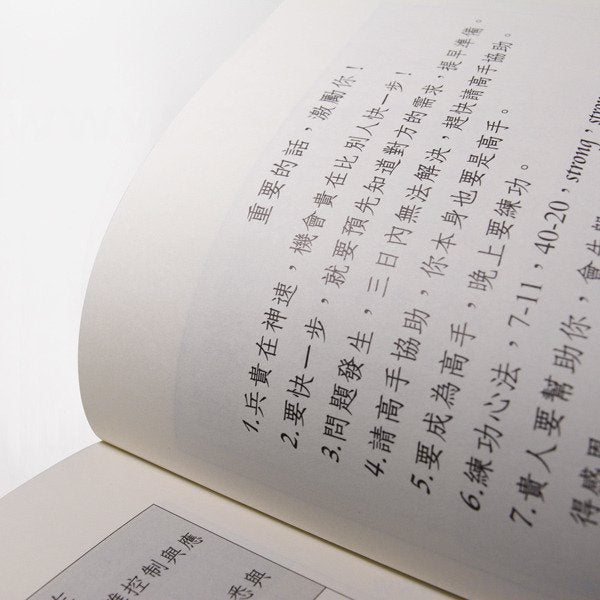 重要的話，激勵你！
1.兵貴在神速，機會貴在比別人快一步！
2.要快一步，就要預先知道對方的需求，提早準備。
3.問題發生，三日內無法解決，趕快請高手協助。
4.請高手協助，你本身也要是高手。
5.要成為高手，晚上要練功。
6.練功心法，7-11，40-20，strong，stron
7.貴人要幫助你，會生
得感恩
控制與應
悉與